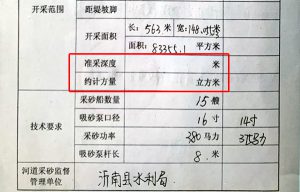 开采范围
距堤坡脚
开采面积
长:563米 宽:148.05米
面积:83355.1 平方米
准采深度 米
约计方量 立方米
技术要求
采砂船数量 15艘
吸砂泵口径 16寸 14寸
采砂功率 380马力 375马力
吸砂泵杆长 8.米
河道采砂监督
管理单位
沂南县水利局